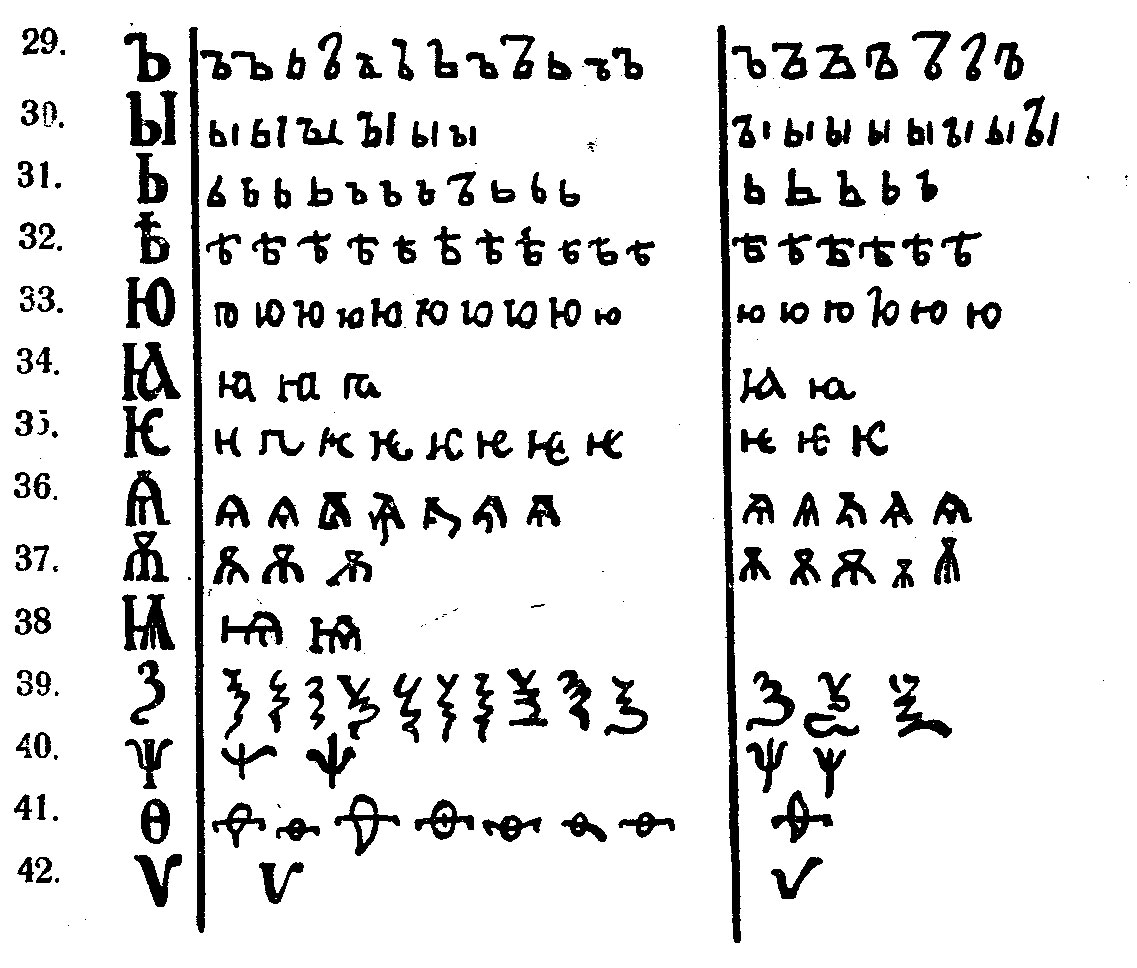 29. Ъ ъ ъ ъ ъ ъ ъ ъ ъ ъ ъ ъ ъ ъ ъ ъ ъ ъ ъ ъ
30. Ы ы ы ы ы ы ы ы ы ы ы ы ы ы ы
31. Ь ь ь ь ь ь ь ь ь ь ь ь ь ь ь ь ь
32. Ѣ ѣ ѣ ѣ ѣ ѣ ѣ ѣ ѣ ѣ ѣ ѣ ѣ ѣ ѣ ѣ ѣ ѣ
33. Ю ю ю ю ю ю ю ю ю ю ю ю ю ю ю ю ю
34. Ꙗ ꙗ ꙗ ꙗ ꙗ ꙗ
35. Ѥ ѥ ѥ ѥ ѥ ѥ ѥ ѥ ѥ ѥ ѥ ѥ
36. Ѧ ѧ ѧ ѧ ѧ ѧ ѧ ѧ ѧ ѧ ѧ ѧ ѧ
37. Ѫ ѫ ѫ ѫ ѫ ѫ ѫ ѫ ѫ
38 Ѩ ѩ ѩ
39. Ѯ ѯ ѯ ѯ ѯ ѯ ѯ ѯ ѯ ѯ ѯ ѯ ѯ ѯ
40. Ѱ ѱ ѱ ѱ ѱ
41. Ѳ ѳ ѳ ѳ ѳ ѳ ѳ ѳ ѳ
42. Ѵ ѵ ѵ